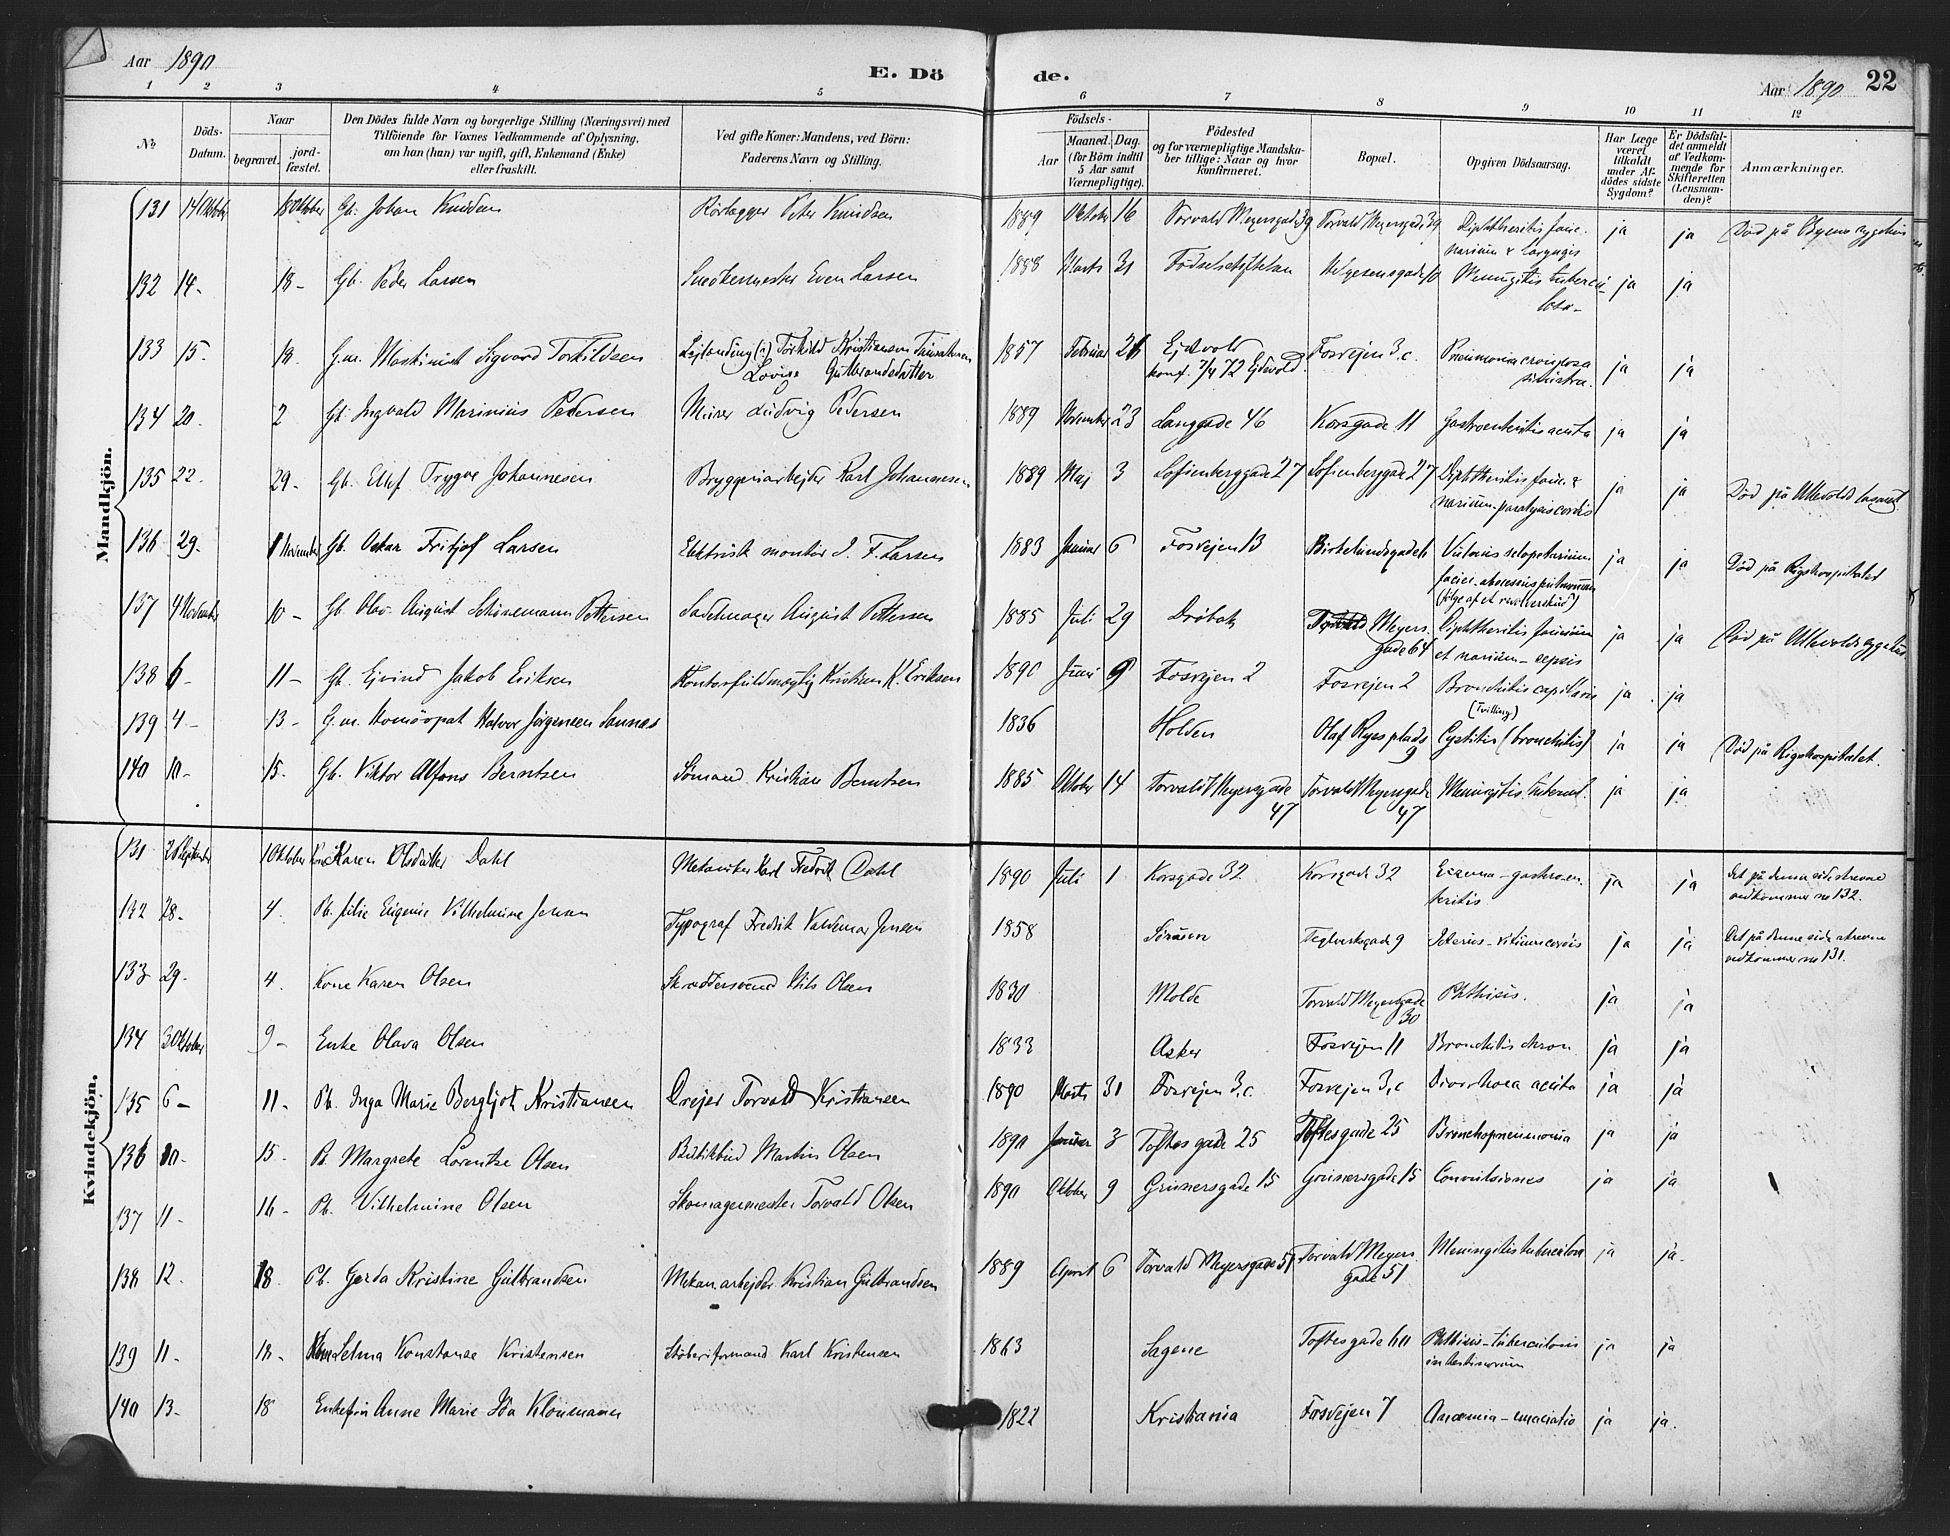 Aar 1890
E. Dö
de.
Aar 1890 22
1 2 3 4 5 6 7 8 9 10 11 12
No
Döds-
Datum.
Naar
begravet.
jord-
fæstet.
Den Dödes fulde Navn og borgerlige Stilling (Næringsvei) med
Tilföiende for Voxnes Vedkommende af Oplysning,
om han (hun) var ugift, gift, Enkemand (Enke)
eller fraskilt.
Ved gifte Koner: Mandens, ved Börn:
Faderens Navn og Stilling.
Födsels-
Aar
Maaned. Dag.
(for Börn indtil
5 Aar samt
Værnepligtige).
Födested
og for værnepligtige Mandska-
ber tillige: Naar og hvor
konfirmeret.
Bopæl.
Opgiven Dödsaarsag.
Har Læge
været
tilkaldt
under Af-
dödes sidste
Sygdom?
Er Dödsfal-
det anmeldt
af Vedkom-
mende for
Skifteretten
(Lensman-
den)?
Anmærkninger.
Mandkjön.
131 14 Oktober 18 Oktober Gb. Johan Knudsen Rörlægger Peter Knudsen 1889 Oktober 16 Torvald Meyersgade 39 Torvald Meyersgade 39 Diphtheritis faucium
narium & laryngis ja ja Död på Byens sygehus
132 14- 18- Gb. Peder Larsen Snedkermester Even Larsen 1888 Marts 31 Födselsstiftelsen Helgesensgade 10 Meningitis tubercu-
losa- ja ja
133 15. 18. G.m. Maskinist Sigvard Torkildsen Torkild Kristiansen
Lovise Gulbrandsdatter 1857 Februar 26 Ejdsvold
konf. 7/4 72 Ejdsvold. Fosvejen 3,c. Pneumonia crouposa
sinistra. ja ja
134 20. 2 Gb. Ingvald Marinius Pedersen Murer Ludvig Pedersen 1889 November 23 Langgade 46 Korsgade 11 Gastroenteritis acuta ja ja
135 22. 29- Gb. Ellef Trygve Johannesen Bryggeriarbejder Karl Johannesen 1889 Maj 3 Sofienberggade 27 Sofienberggade 27 Diphtheritis faucium &
narium-paralysis cordis ja ja Död på Ullevolds lasaret
136 29. 1 November Gb. Oskar Fritjof Larsen Elektrisk montör J. F. Larsen 1883 Januar 6 Fosvejen 13 Birkelundsgade 6 Vulnus sclopetarium
faciei-abscessus
(fölge af et revolverskud) ja ja Död på Rigshospitalet
137 4 November 10- Gb. Olav August Schönemann Pettersen Sadelmager August Pettersen 1885 Juli 29 Dröbak Torvald Meyers
gade 64 Diphtheritis faucium
et narium-sepsis ja ja Död på Ullevolds sygehus
138 6- 11- Gb. Ejvind Jakob Eriksen Kontorfuldmægtig Kristian K. Eriksen 1890 Juni 9 Fosvejen 2 Fosvejen 2 Bronchitis capillaris
(Tvilling) ja ja
139 4- 13- G.m. Homöopat Halvor Jörgensen Sannes 1836 Holden Olaf Ryes plads
9 Cystitis (bronchitis) ja ja Död på Rigshospitalet.
140 10- 15. Gb. Viktor Alfons Berntsen Sömand Kristian Berntsen 1885 Oktober 14 Torvald Meyersgade
47 Torvald Meyersgade
47 Meningitis tubercul. ja ja
Kvindekjön.
131 28 September 1 Oktober Kone Karen Olsdatter Dahl Mekaniker Karl Fredrik Dahl 1890 Juli 1 Korsgade 32 Korsgade 32 Eczema-gastroen-
teritis. ja ja Det på denne side skrevne
vedkommer no 132.
132 28- 4. Pb. Julie Eugenie Vilhelmine Jensen Typograf Fredrik Valdemar Jensen 1858 Sörum Teglverksgade 9 Icterus-vitium cordis ja ja Det på denne side skrevne
vedkommer no 131.
133 29. 4. Kone Karen Olsen Skræddersvend Nils Olsen 1830 Molde Torvald Meyersgade
30 Phthisis. ja ja
134 3 Oktober 9- Enke Olava Olsen 1833 Asker Fosvejen 11 Bronchitis chron. ja ja
135 6- 11- Pb. Inga Marie Bergljot Kristiansen Drejer Torvald Kristiansen 1890 Marts 31 Fosvejen 3,c. Fosvejen 3,c Diarrhoea acuta ja ja
136 10- 15. Pb. Margrete Lorentze Olsen Butikbud Martin Olsen 1890 Januar 3 Toftesgade 25 Toftesgade 25 Bronchopneumonia ja ja
137 11- 16- Pb. Vilhelmine Olsen Skomagermester Torvald Olsen 1890 Oktober 9 Grünersgade 15 Grünersgade 15 Convulsiones ja ja
138 12. 18. Pb. Gerda Kristine Gulbrandsen Mekan.arbejder Kristian Gulbrandsen 1889 April 6 Torvald Meyersgade 51 Torvald Meyers
gade 51 Meningitis tuberculosa ja ja-
139 11- 18- Kone Selma Konstanse Kristensen Stöberiformand Karl Kristensen 1863 Sagene Toftesgade 60 Phthisis-tuberculosis
intestinorum ja ja
140 13- 18 Enkefru Anne Marie Ida Kloumann 1822 Kristiania Fosvejen 7 Anæmia-emaciatio ja ja.